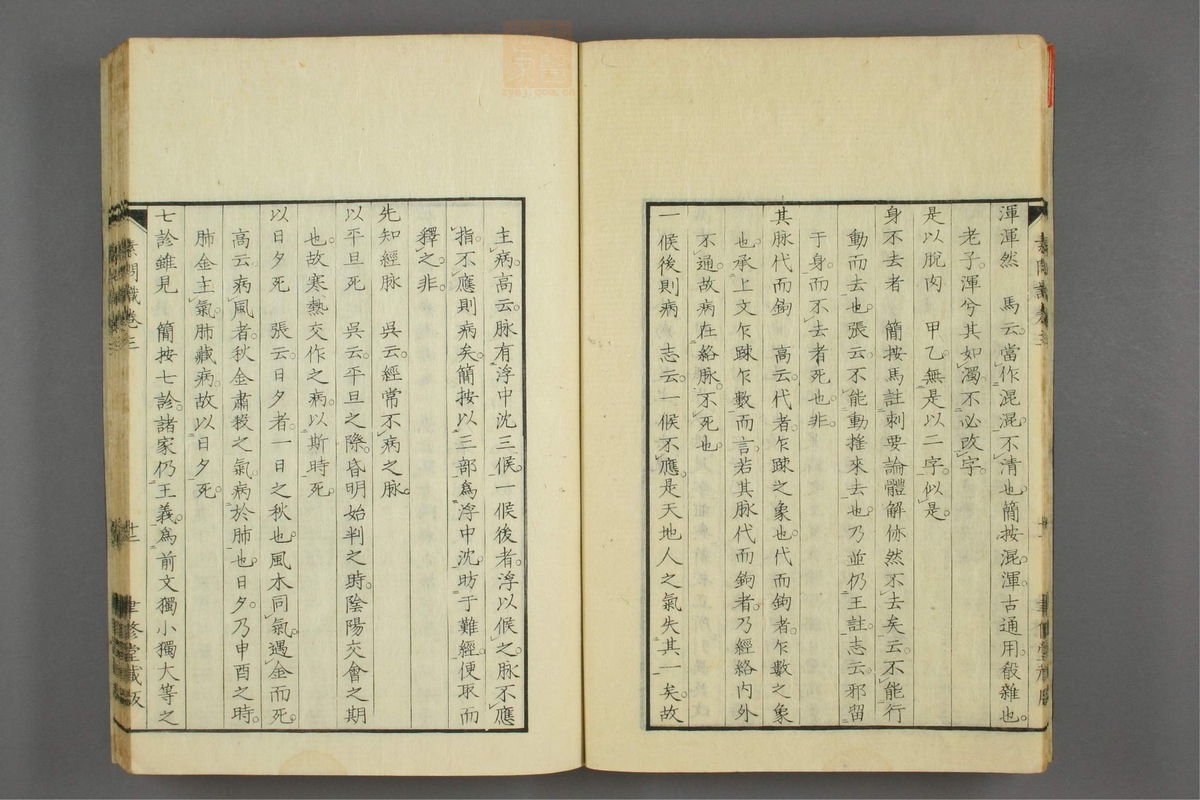 渾渾然　馬云。當作混混。不清也。簡按。混渾古通用。殽雜也。
老子。渾兮其如濁。不必改字。
是以脫肉　甲乙。無是以二字。似是。
身不去者　簡按馬註刺要論體解㑊然不去矣云。不能行
動而去也。張云。不能動搖來去也。乃並仍王註。志云。邪留
于身。而不去者死也。非。
其脉代而鉤　高云。代者。乍踈之象也。代而鉤者。乍數之象
也。承上文乍踈乍數而言。若其脉代而鉤者。乃經絡內外
不通。故病在絡脉。不死也。
一候後則病　志云。一候不應。是天地人之氣失其一矣。故
主病。高云。脉有浮中沈三候。一候後者。浮以候之。脉不應
指。不應則病矣。簡按。以三部爲浮中沈。昉于難經。便取而
釋之。非。
先知經脉　吳云。經常不病之脉。
以平旦死　吳云。平旦之際。昏明始判之時。陰陽交會之期
也。故寒熱交作之病。以斯時死。
以日夕死　張云。日夕者。一日之秋也。風木同氣。遇金而死。
高云。病風者。秋金肅殺之氣。病於肺也。日夕。乃申酉之時。
肺金主氣。肺藏病。故以日夕死。
七診雖見　簡按七診。諸家仍王義。爲前文獨小獨大等之
素問識卷三
十二
聿修堂藏版